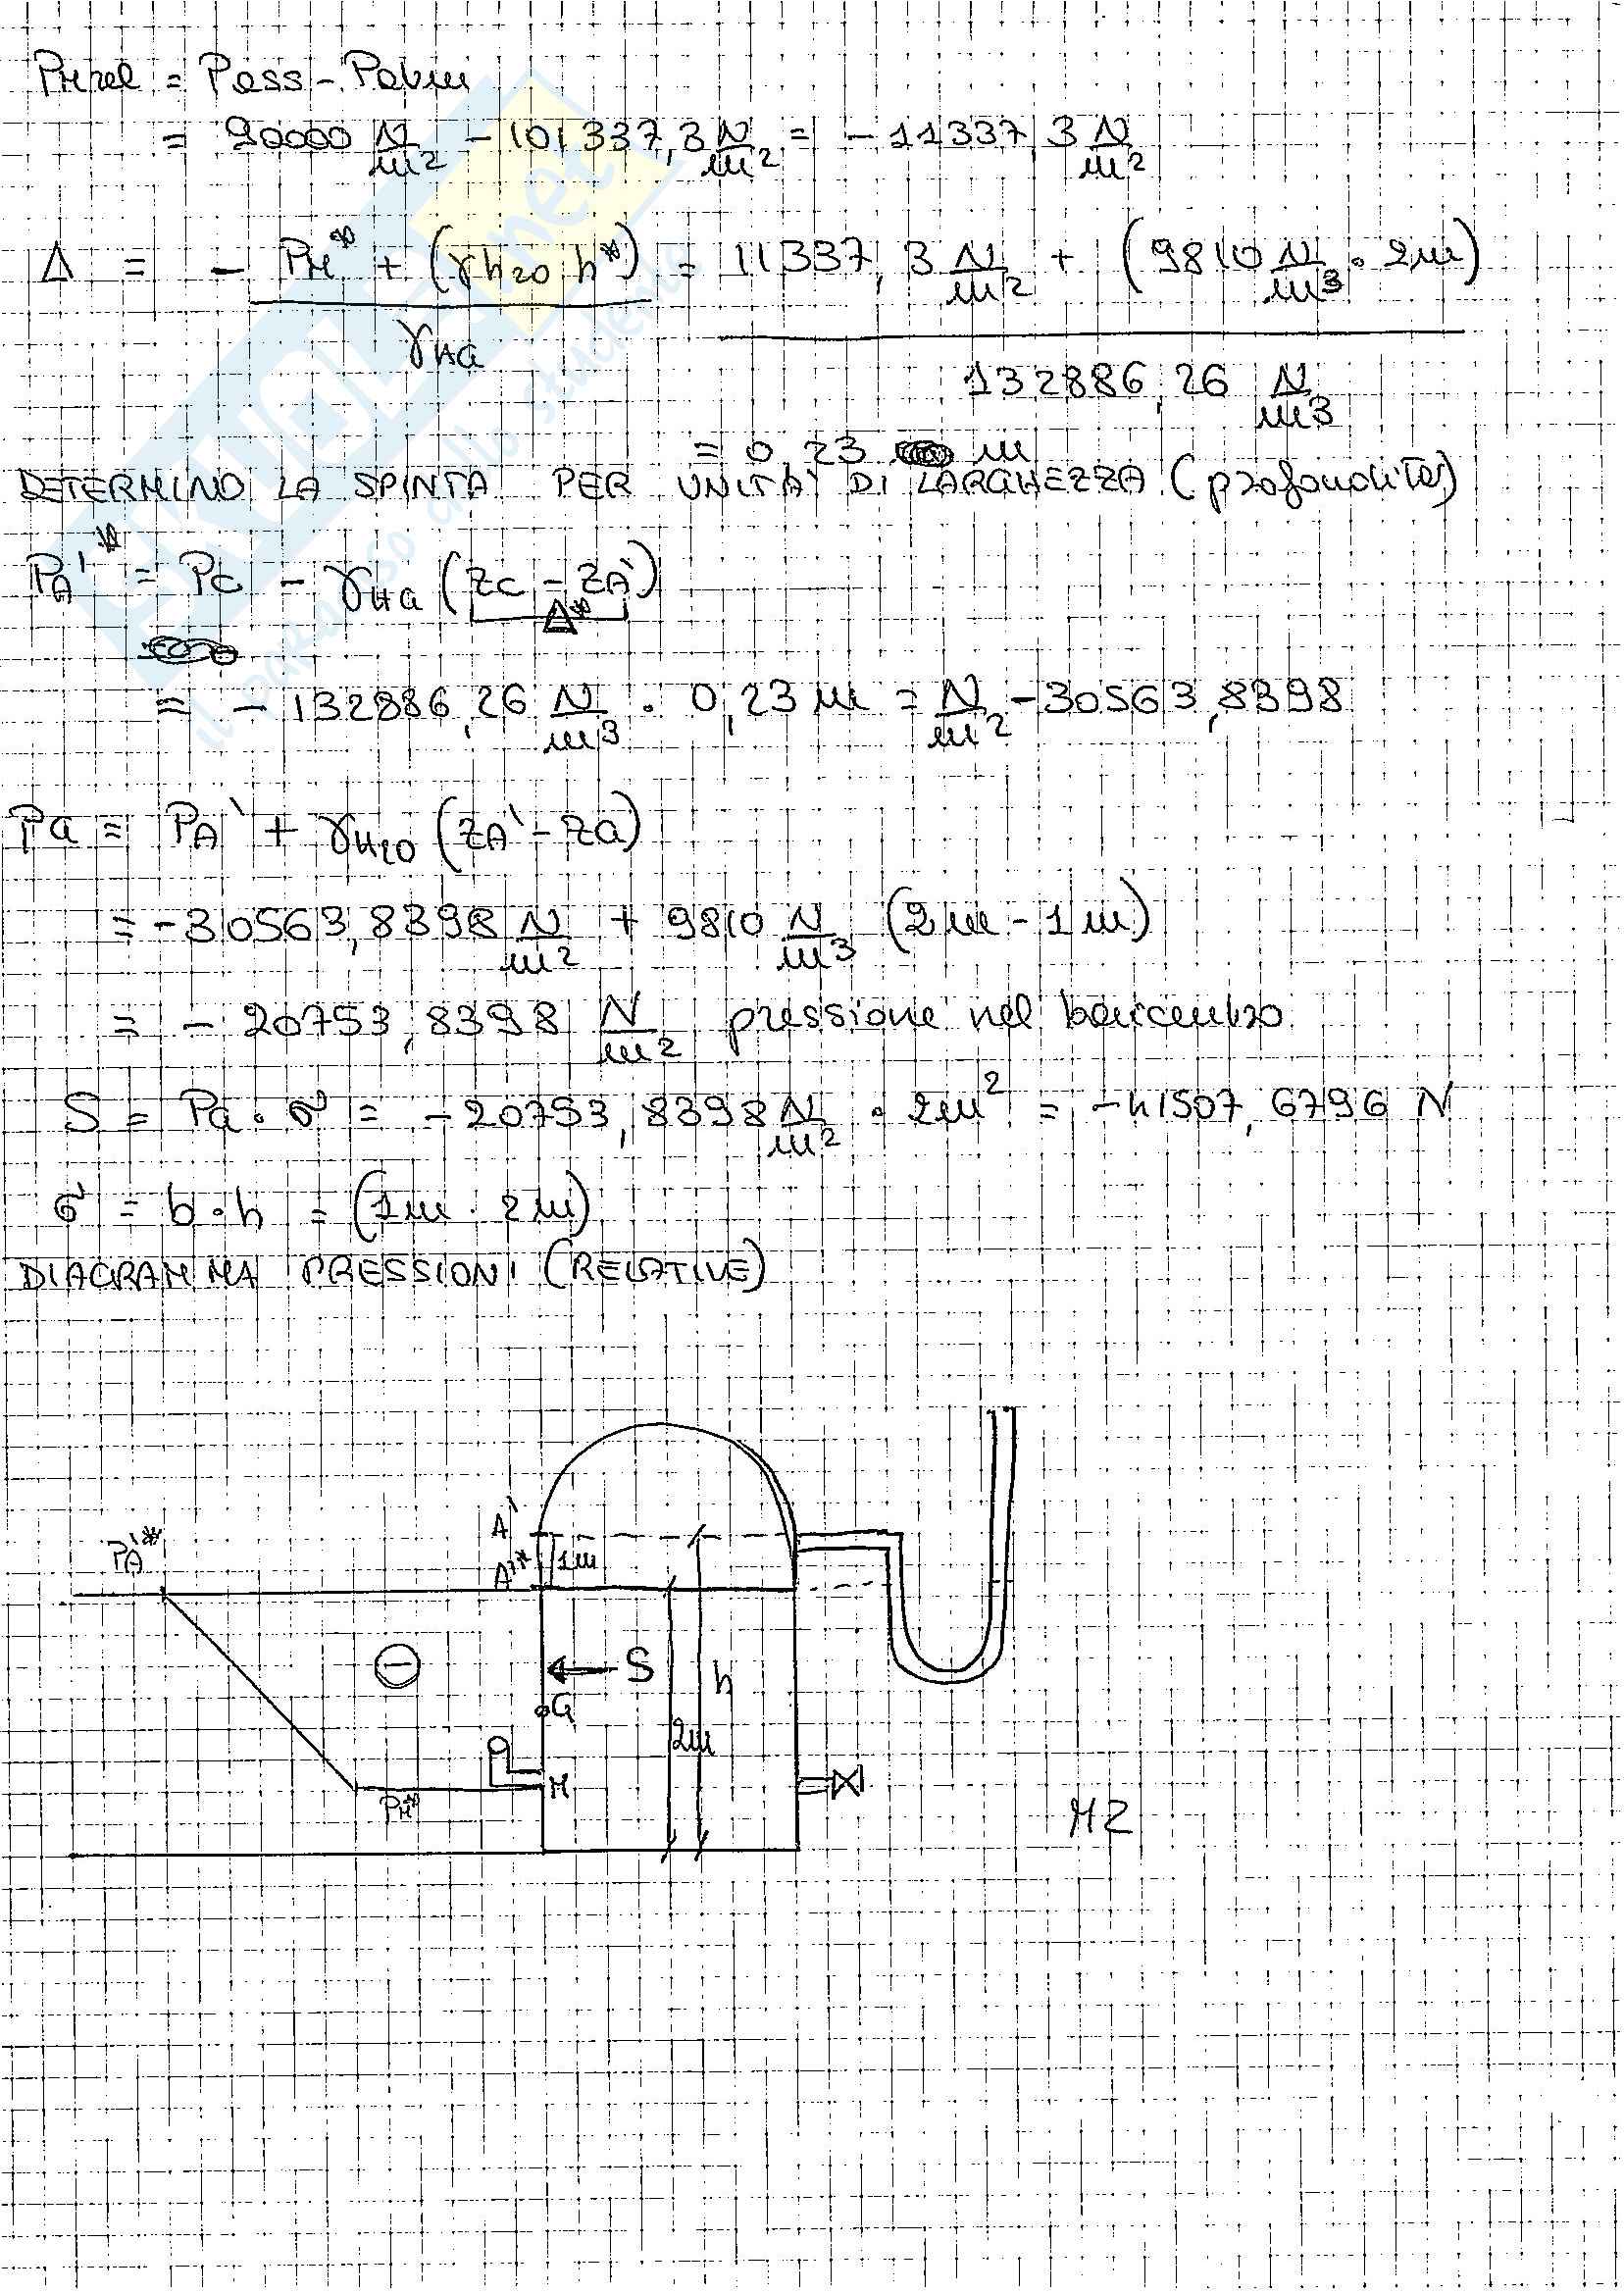 PM rel = Pass - Patm
= 90000 N/m² - 101337,3 N/m² = - 11337,3 N/m²
Δ = - PM* + (γH2O h*) / γHg = 11337,3 N/m² + (9810 N/m³ · 2m) / 132886,26 N/m³
= 0,23 m
DETERMINO LA SPINTA PER UNITA' DI LARGHEZZA (profondità)
PA'* = Pc - γHg (Zc - ZA')
Δ*
= - 132886,26 N/m³ · 0,23 m = N/m² - 30563,8398
PG = PA' + γH2O (ZA' - ZG)
= - 30563,8398 N/m² + 9810 N/m³ (2m - 1m)
= - 20753,8398 N/m² pressione nel baricentro
S = PG · σ = - 20753,8398 N/m² · 2m² = - 41507,6796 N
σ = b · h = (1m · 2m)
DIAGRAMMA PRESSIONI (RELATIVE)
A'
PA'*
A'* 1m
S
h
G
2m
M
PM*
HZ